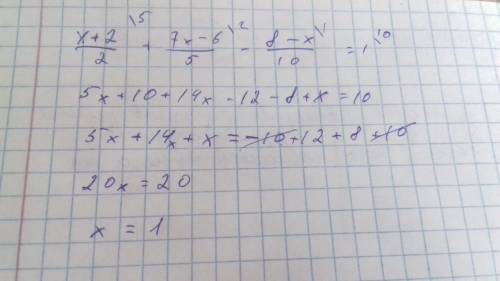 x+2/2 \5 + 7x-6/5 \2 - 8-x/10 \1 = 1 \10
5x+10+14x-12-8+x=10
5x+14x+x=-10+12+8+10
20x=20
x = 1